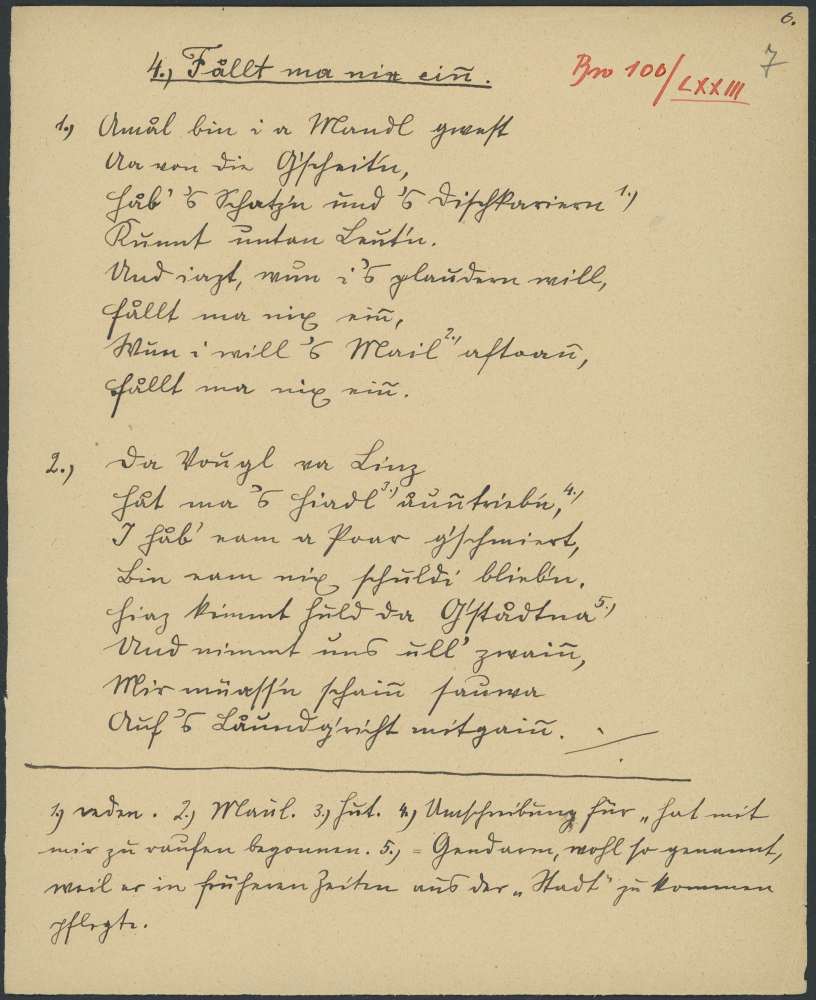 6.
7
4., Fållt ma nix eiñ.
Bro 100/LXXIII
1., Amål bin i a Mandl gwest
Aa von die G'scheit'n,
Håb' 's Schatz'n und 's Dischkariern 1.)
Kunnt untan Leut'n.
Und iazt, wun i 's plaudern will,
Fållt ma nix eiñ,
Wun i will 's Mail 2.) aftoañ,
Fållt ma nix eiñ.
2., Da Vougl va Linz
Håt ma 's Hiadl 3.) åuñtrieb'n, 4.)
I håb' eam a Poar g'schmiert,
Bin eam nix schuldi' blieb'n.
Hiaz kimmt huld da G'stådtna 5.)
Und nimmt uns ull' zwaiñ,
Mir müass'n schaiñ sauwa
Auf 's Låundg'richt mitgaiñ.
1., reden. 2., Maul. 3., Hut. 4., Umschreibung für „hat mit
mir zu raufen begonnen. 5., = Gendarm, wohl so genannt,
weil er in früheren Zeiten aus der „Stadt" zu kommen
pflegte.